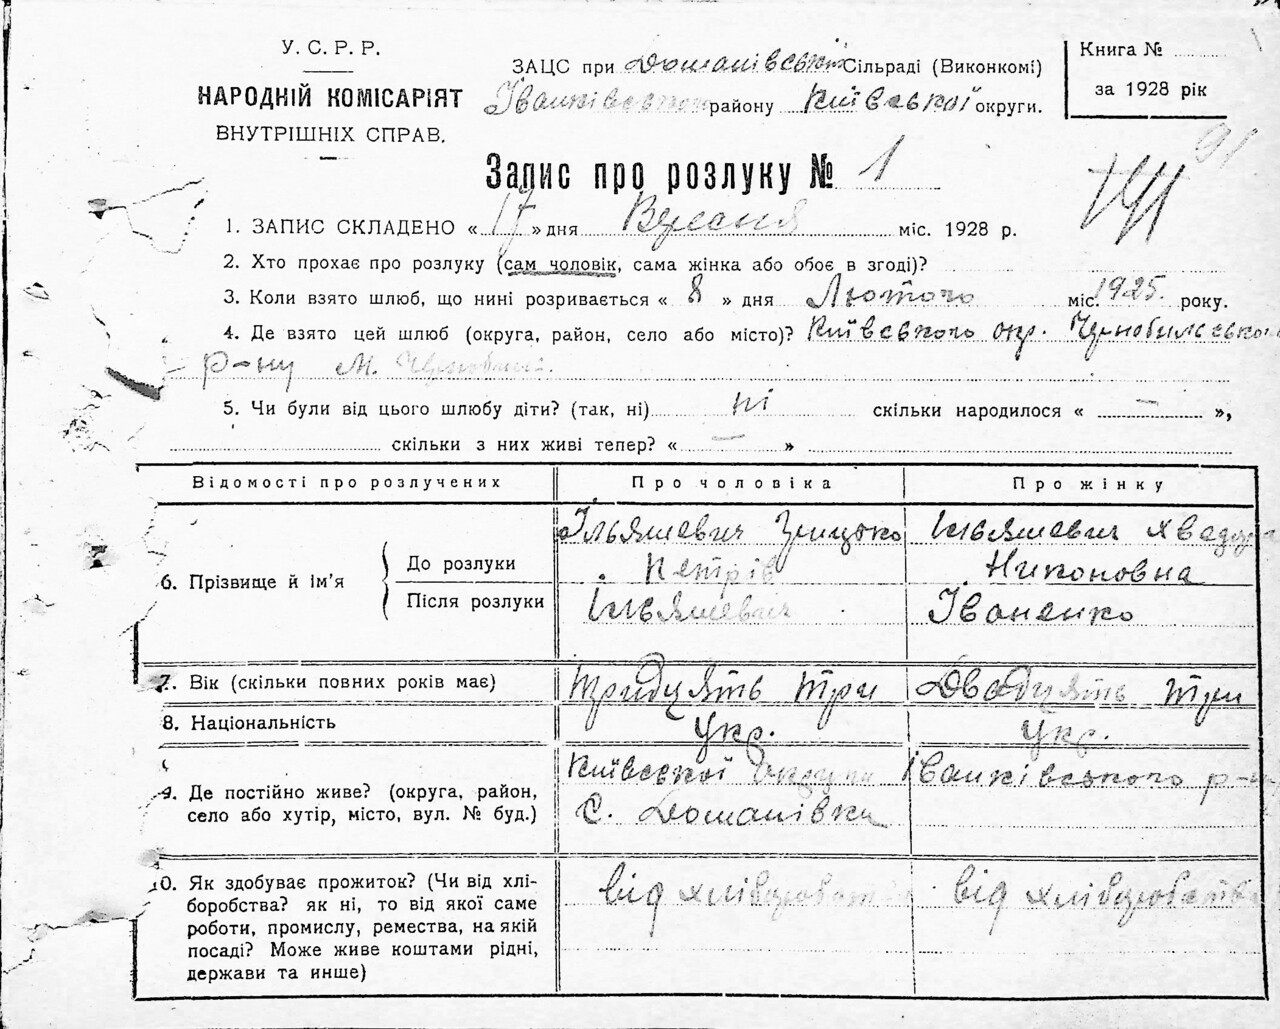 У. С. Р. Р.
НАРОДНІЙ КОМІСАРІЯТ
ВНУТРІШНІХ СПРАВ.
ЗАЦС при Доманівській Сільраді (Виконкомі)
Іванківського району Київської округи.
Книга №
за 1928 рік
91
Запис про розлуку № 1
1. ЗАПИС СКЛАДЕНО « 17 » дня Вересня міс. 1928 р.
2. Хто прохає про розлуку (сам чоловік, сама жінка або обоє в згоді)?
3. Коли взято шлюб, що нині розривається « 8 » дня Лютого міс. 1925 року.
4. Де взято цей шлюб (округа, район, село або місто)? Київського окр. Чорнобильського
р-ну м. Чорнобилі.
5. Чи були від цього шлюбу діти? (так, ні) ні скільки народилося « — »,
скільки з них живі тепер? « — »
Відомості про розлучених
Про чоловіка
Про жінку
6. Прізвище й ім'я
До розлуки
Ільяшевич Грицько
Петрів
Ільяшевич
Никоновна
Після розлуки
Ільяшевич
Іваненко
7. Вік (скільки повних років має)
Тридцять три
Двадцять три
8. Національність
Укр.
Укр.
9. Де постійно живе? (округа, район,
село або хутір, місто, вул. № буд.)
Київської округи Іванківського р-н
С. Доманівка
10. Як здобуває прожиток? (Чи від хлі-
боробства? як ні, то від якої саме
роботи, промислу, ремества, на якій
посаді? Може живе коштами рідні,
держави та инше)
від хліборобства
від хліборобства